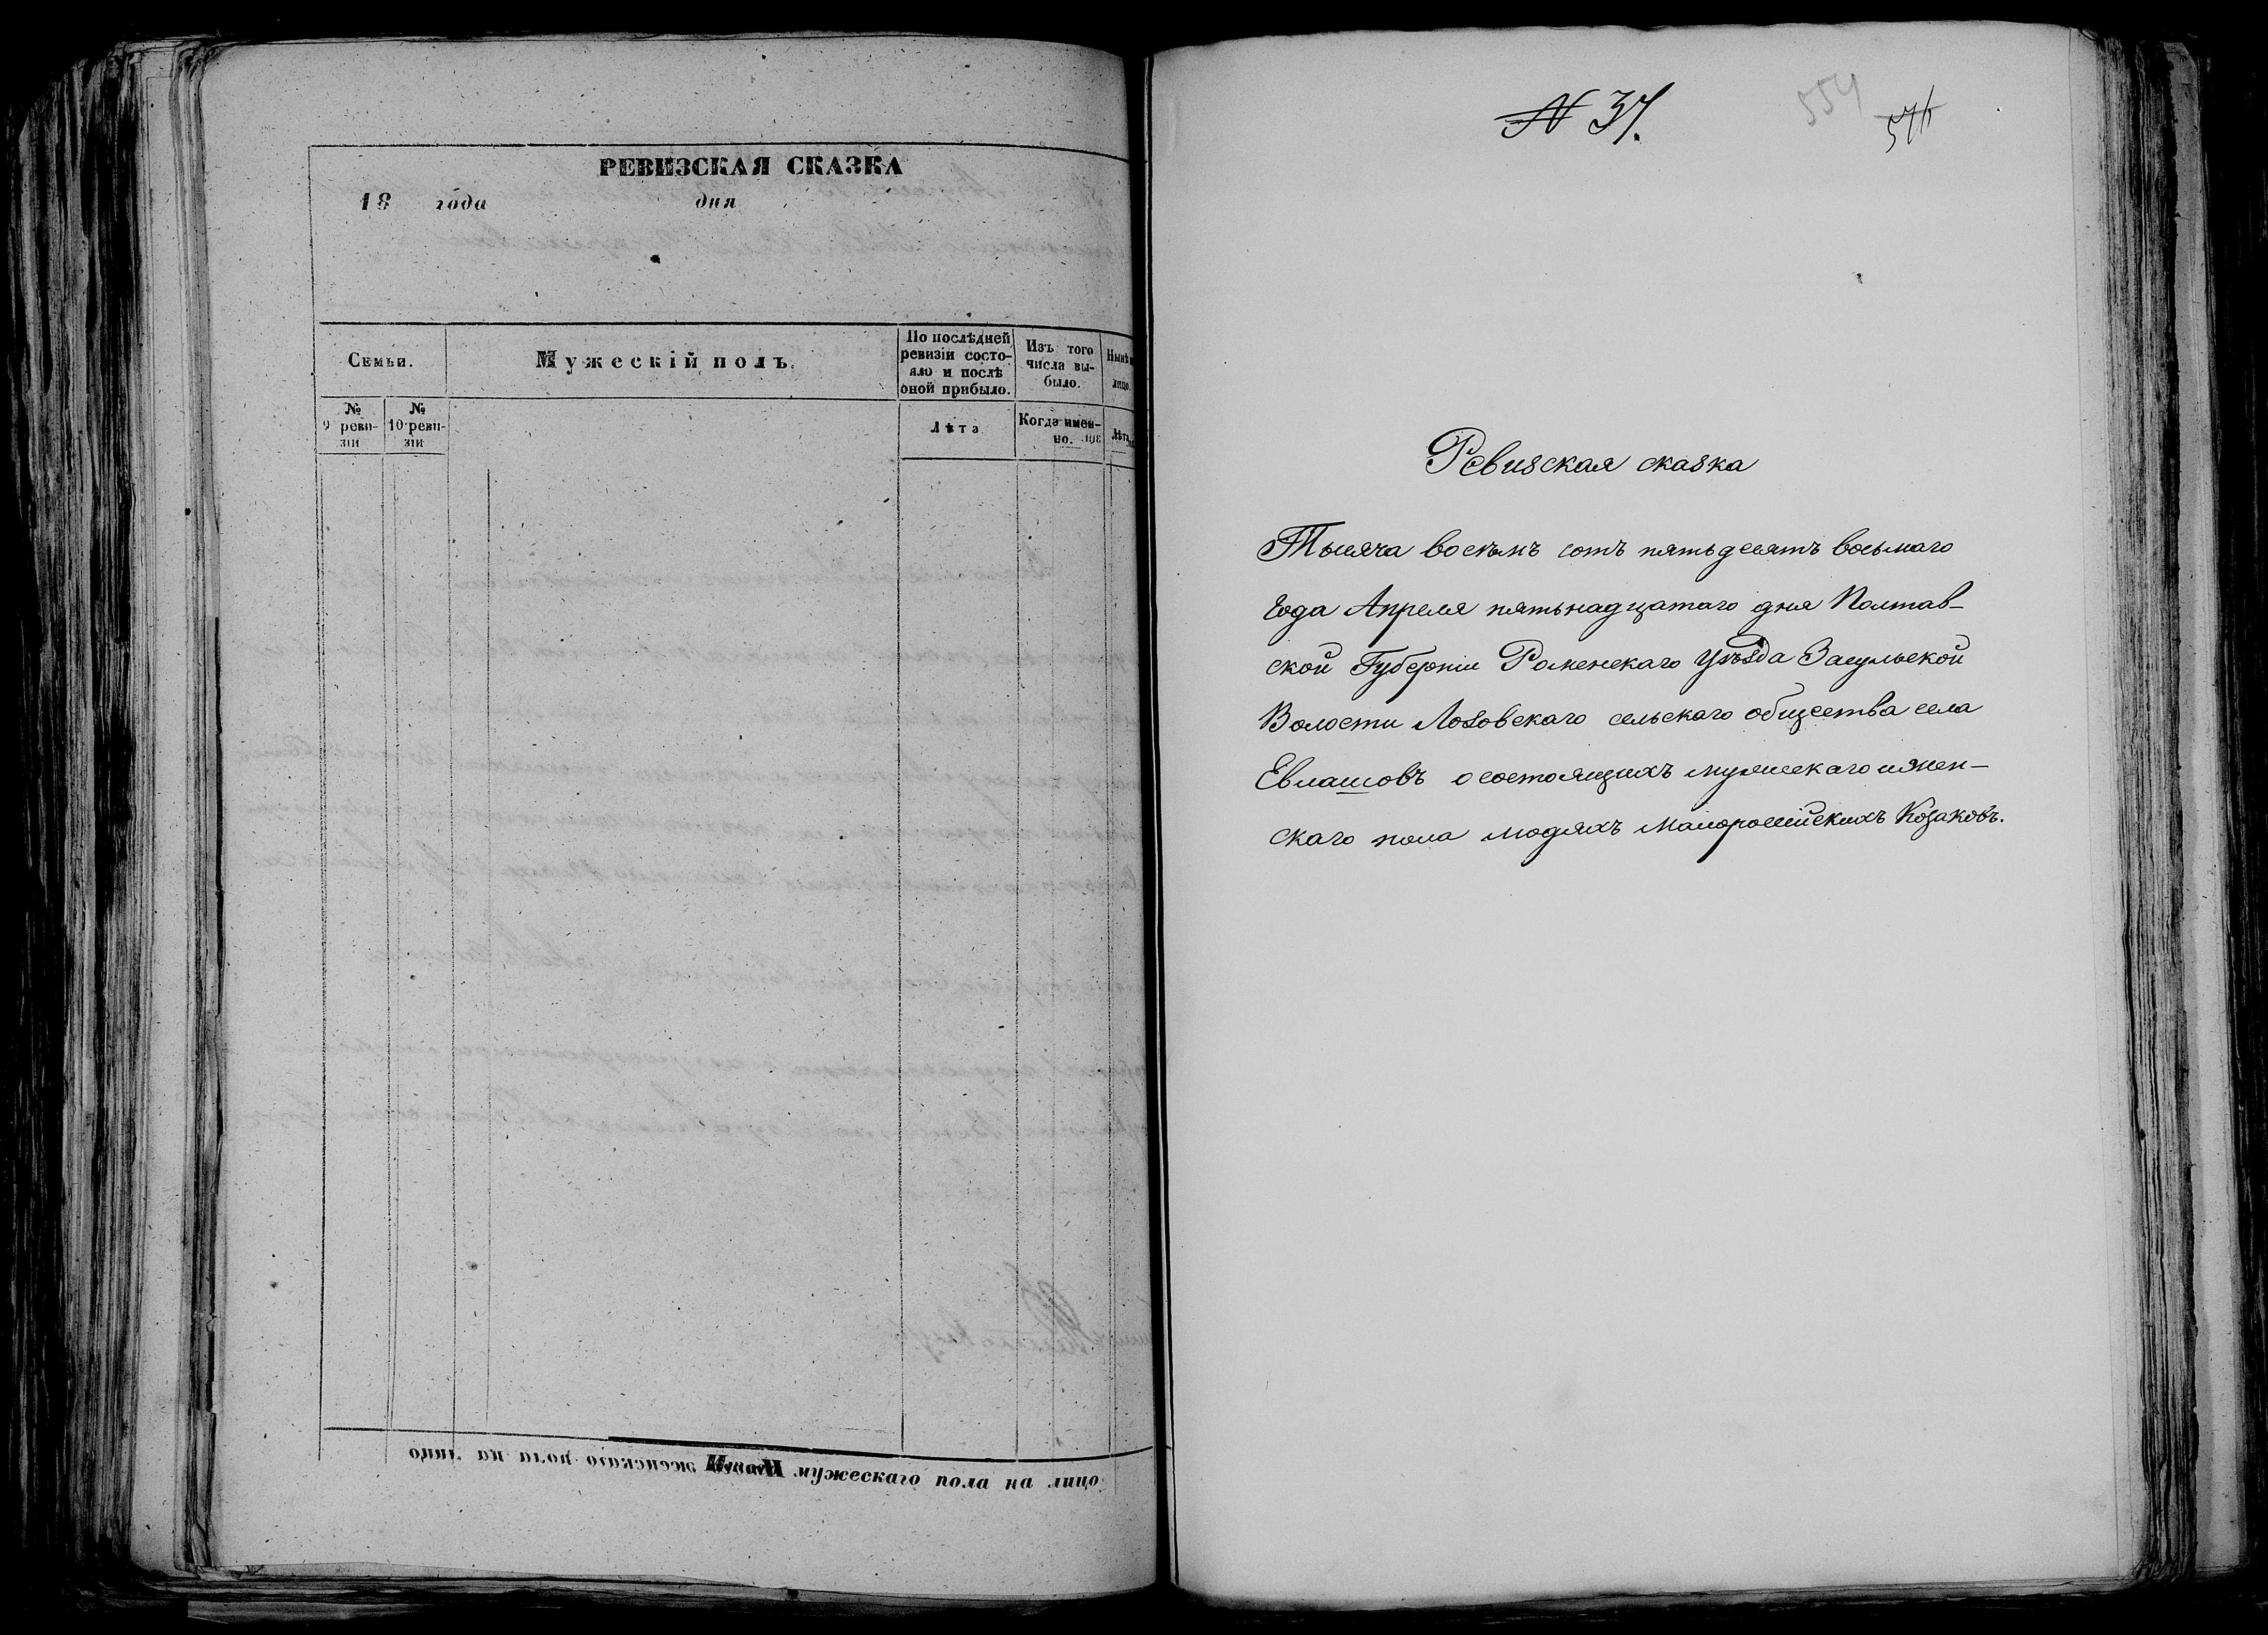 РЕВИЗСКАЯ СКАЗКА
18 года дня
Семьи.
Мужескій полъ.
По послѣдней ревизіи состояло и послѣ оной прибыло.
Изъ того числа выбыло.
Нынѣ
лицо.
№ 9 ревизіи
№ 10 ревизіи
Лѣта
Когда именно.
Лѣта
Итого мужескаго пола на лицо
№ 37.
554
Ревизская сказка
Тысяча восемь сотъ пятьдесятъ восьмаго
года Апреля пятьнадцатаго дня Полтав-
ской Губерніи Роменскаго Уѣзда Засульской
Волости Лозовскаго сельскаго общества села
Евлашовъ о состоящихъ мужескаго и жен-
скаго пола людяхъ Малоросійскихъ Козаковъ.